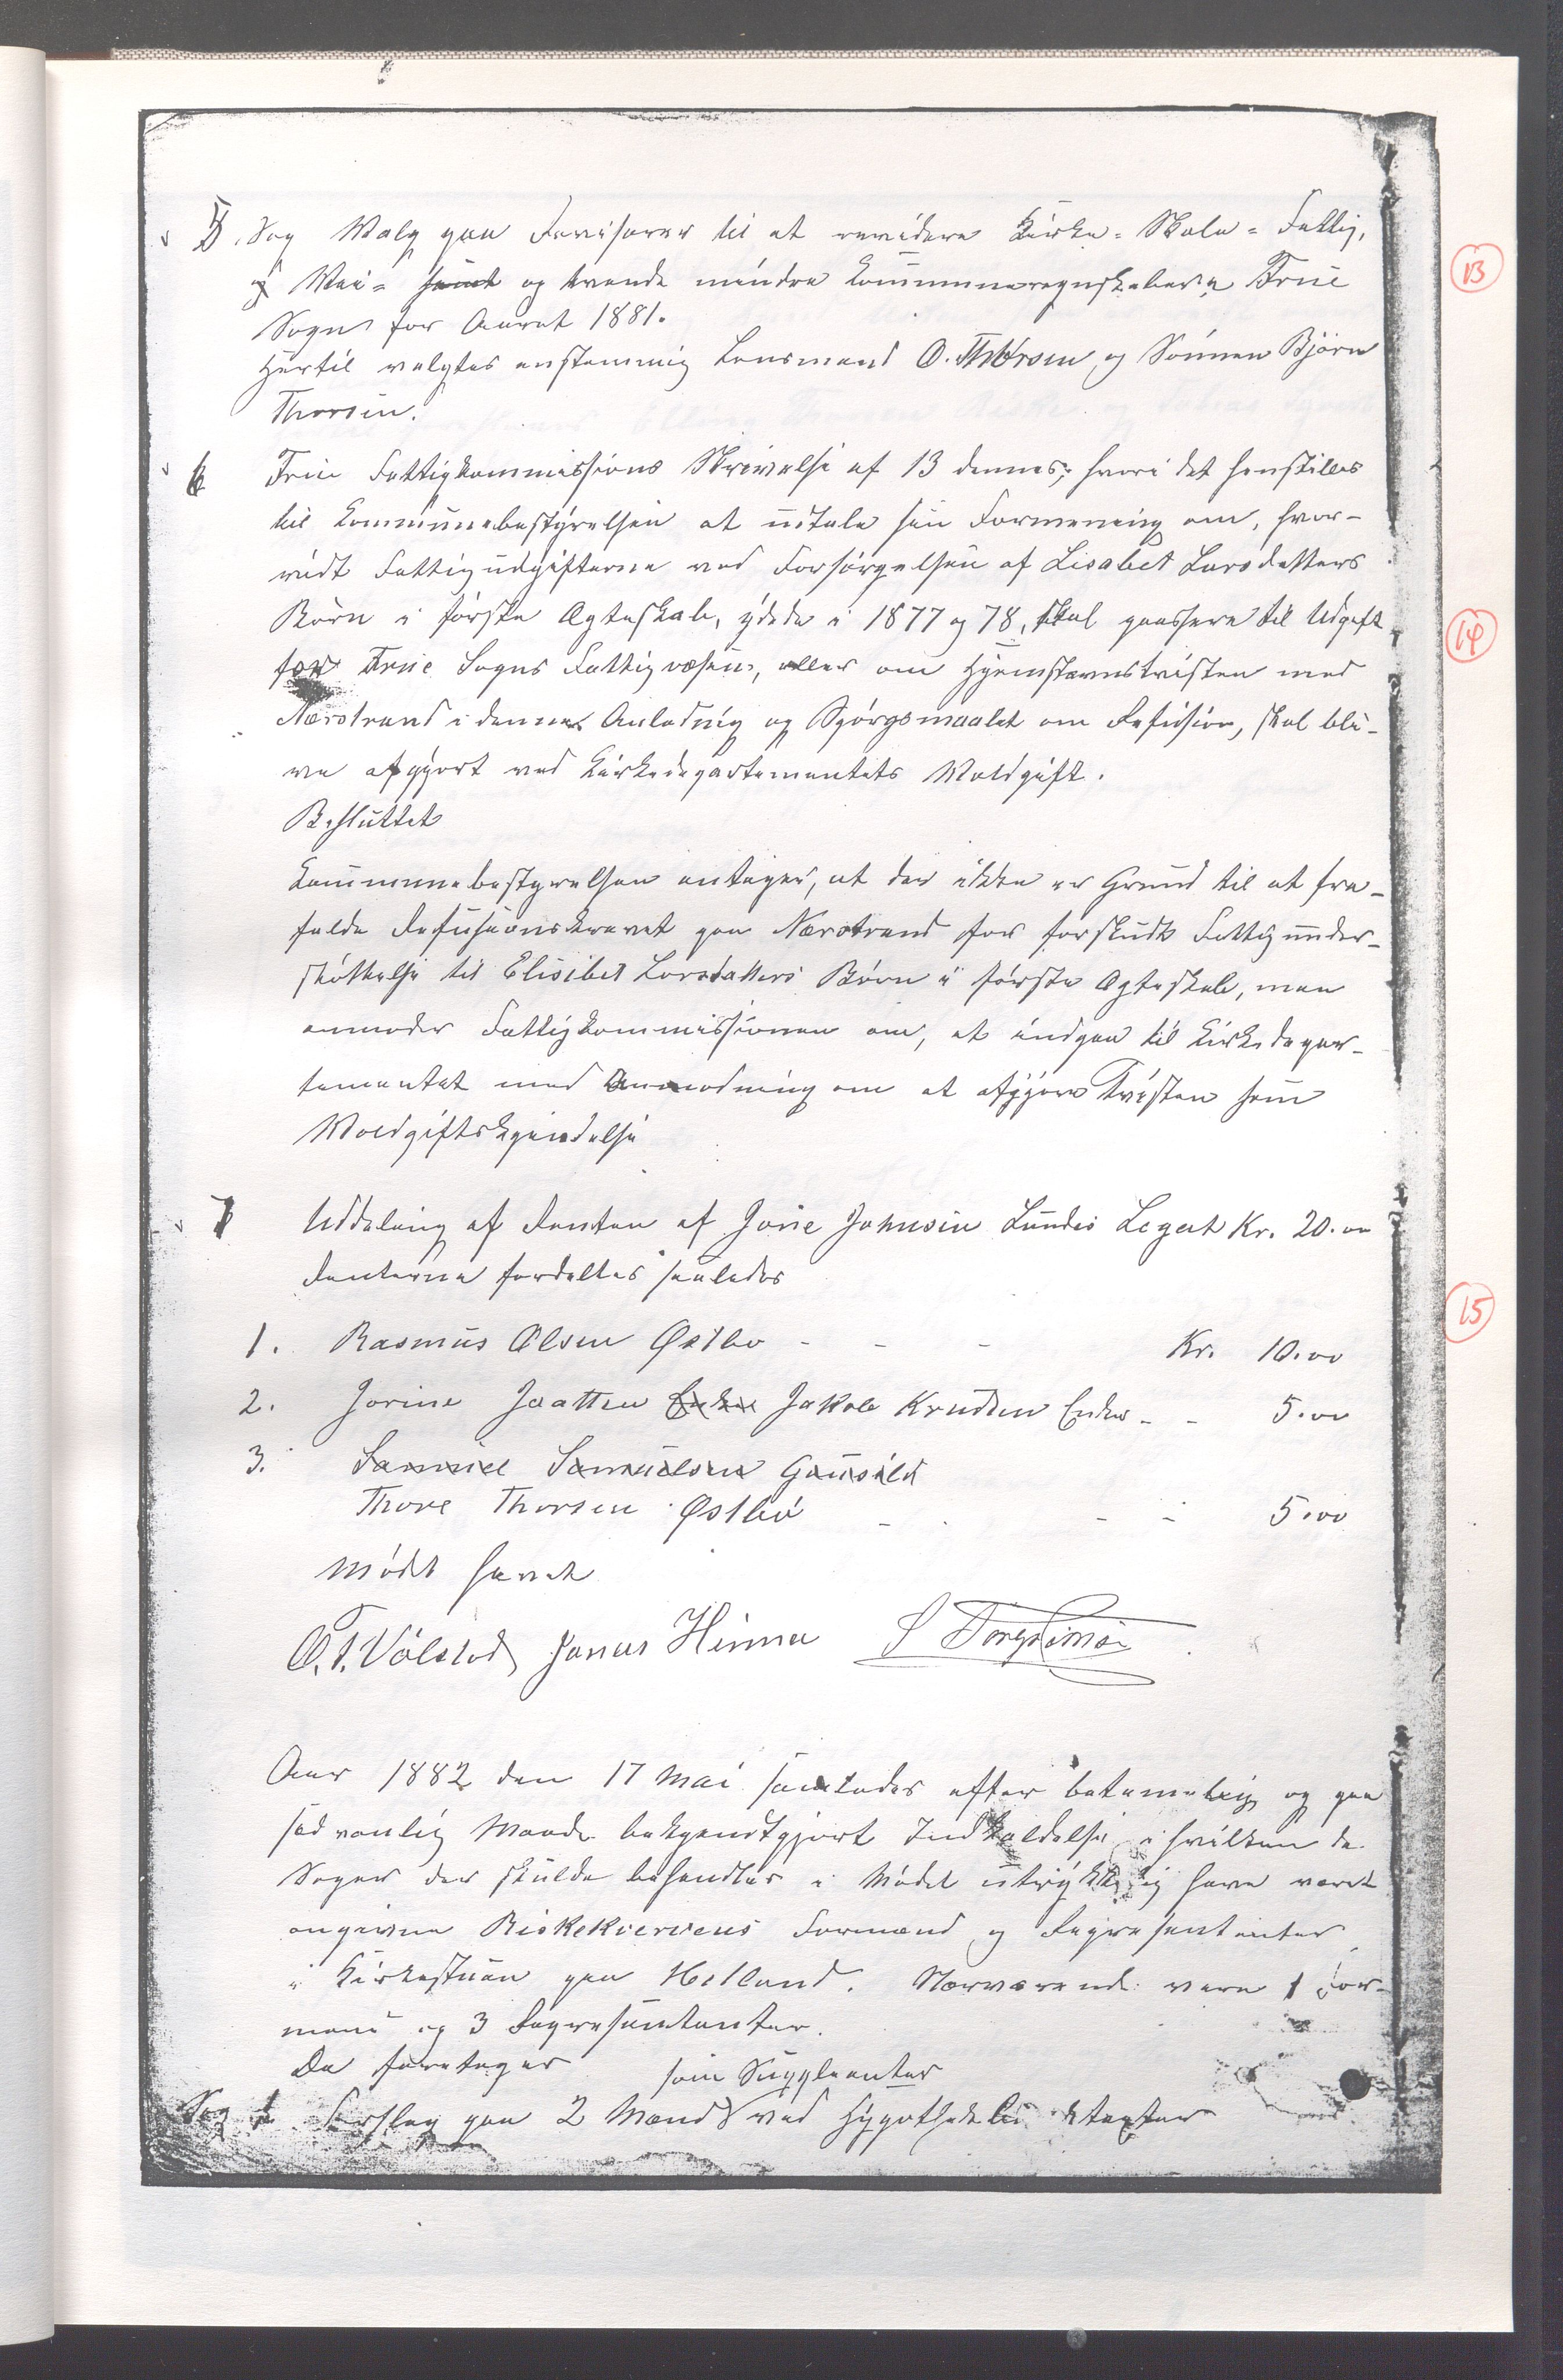 5. Sag Valg paa Revisorer til at revidere Kirke- Skole- Fattig,
og Vei- samt og trende mindre Kommuneregnskaber i Frue
Sogn for Aaret 1881.
Hertil valgtes enstemmig Lensmand O. Thorsen og Sönnen Björn
Thorsen.
6 Frue Fattigkommissions Skrivelse af 13 dennes, hvori det henstilles
til Kommunebestyrelsen at udtale sin Formening om, hvor-
vidt Fattigudgifterne ved Forsörgelsen af Lisabet Larsdatters
Börn i förste Ægteskab, ydede i 1877 og 78, skal passere til Udgift
for Frue Sogns Fattigvæsen, eller om Hjemstavnstvisten med
Nærstrand i dennes Anledning og Spörgsmaalet om Refusion, skal bli-
ve afgjort ved Kirkedepartementets Voldgift.
Besluttet
Kommunebestyrelsen antager, at der ikke er Grund til at fra-
falde Refusionskravet paa Nærstrand for forskudt Fattigunder-
støttelse til Elisibet Larsdatters Börn i förste Ægteskab, men
anmoder Fattigkommissionen om, at indgaa til Kirkedepar-
tementet med Anmodning om at afgjøre Tvisten som
Voldgiftskjendelse
7 Uddeling af Renten af Jone Johnsen Lundes Legat Kr. 20.00
Renterne fordeltes saaledes
1. Rasmus Olsen Østbø - - - Kr. 10.00
2. Jorine Jaatten Enke Jakob Knudsen Enke - - 5.00
3. Samuel Samuelsen Gausel
Thore Thorsen Østbö - - - 5.00
Mödet hævet
O. T. Völstad Jonas Hinna
Aar 1882 den 17 Mai samledes efter betimelig og paa
sædvanlig Maade bekjendtgjort Indkaldelse i hvilken de
Sager der skulde behandles i Mödet udtrykkelig have været
angivne Riskekvervens Formænd og Repræsentanter
i Kirkestuen paa Hetland. Nærværende vare 1 For-
mand og 3 Repræsentanter.
Da foretages
som Suppleanter
Sag 1. Forslag paa 2 Mænd ved Hypothek
13
14
15